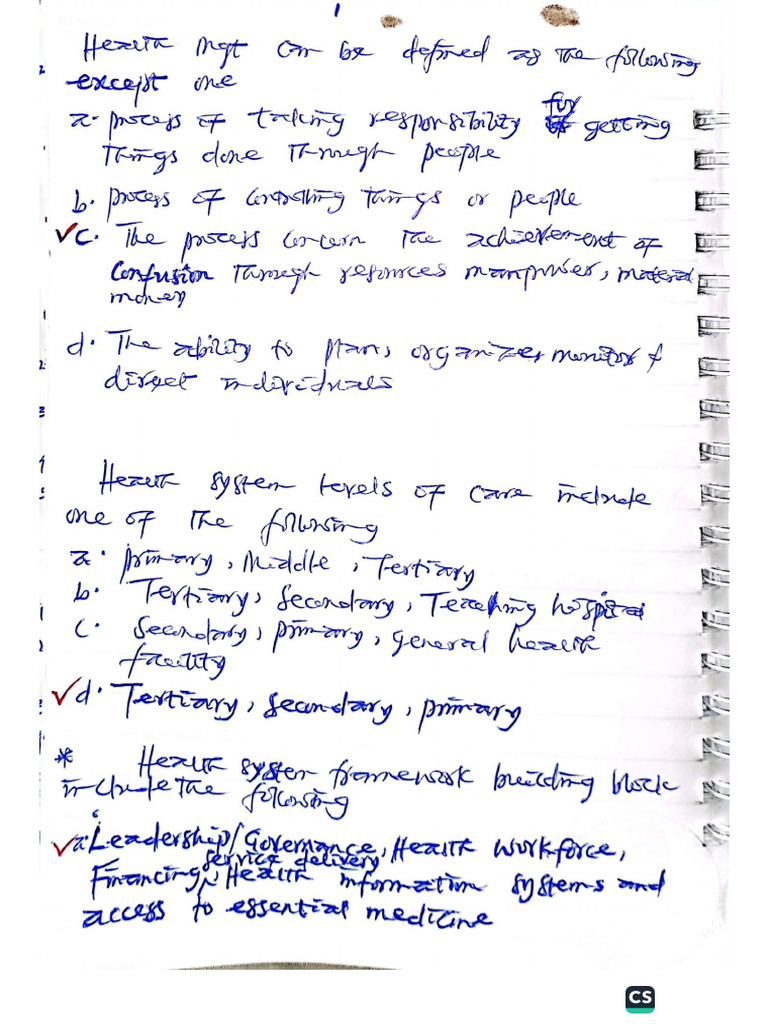 1
Health mgt can be defined as the following
except one
a. process of taking responsibility for getting
things done through people
b. process of controlling things or people
✓c. The process concern the achievement of
Confusion through resources manpower, material
money
d. The ability to plan, organizes monitor &
direct individuals
Health system levels of care include
one of the following
a. primary, middle, Tertiary
b. Tertiary, secondary, Teaching hospital
c. secondary, primary, general health
facility
✓d. Tertiary, secondary, primary
* Health system framework building block
include the following
✓a. Leadership/Governance, Health workforce,
service delivery
Financing, Health information systems and
access to essential medicine
CS